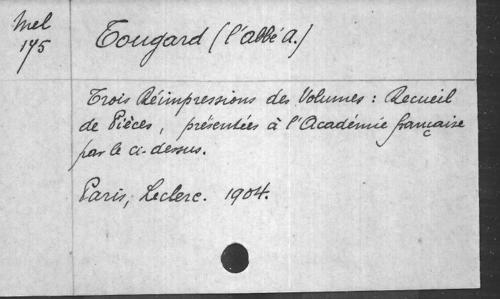 Mel
175
Tougard (l'abbé A.)
Trois Réimpressions des Volumes : Recueil
de Pièces, présentées à l'Académie française
par le ci-dessus.
Paris, Leclerc. 1904.